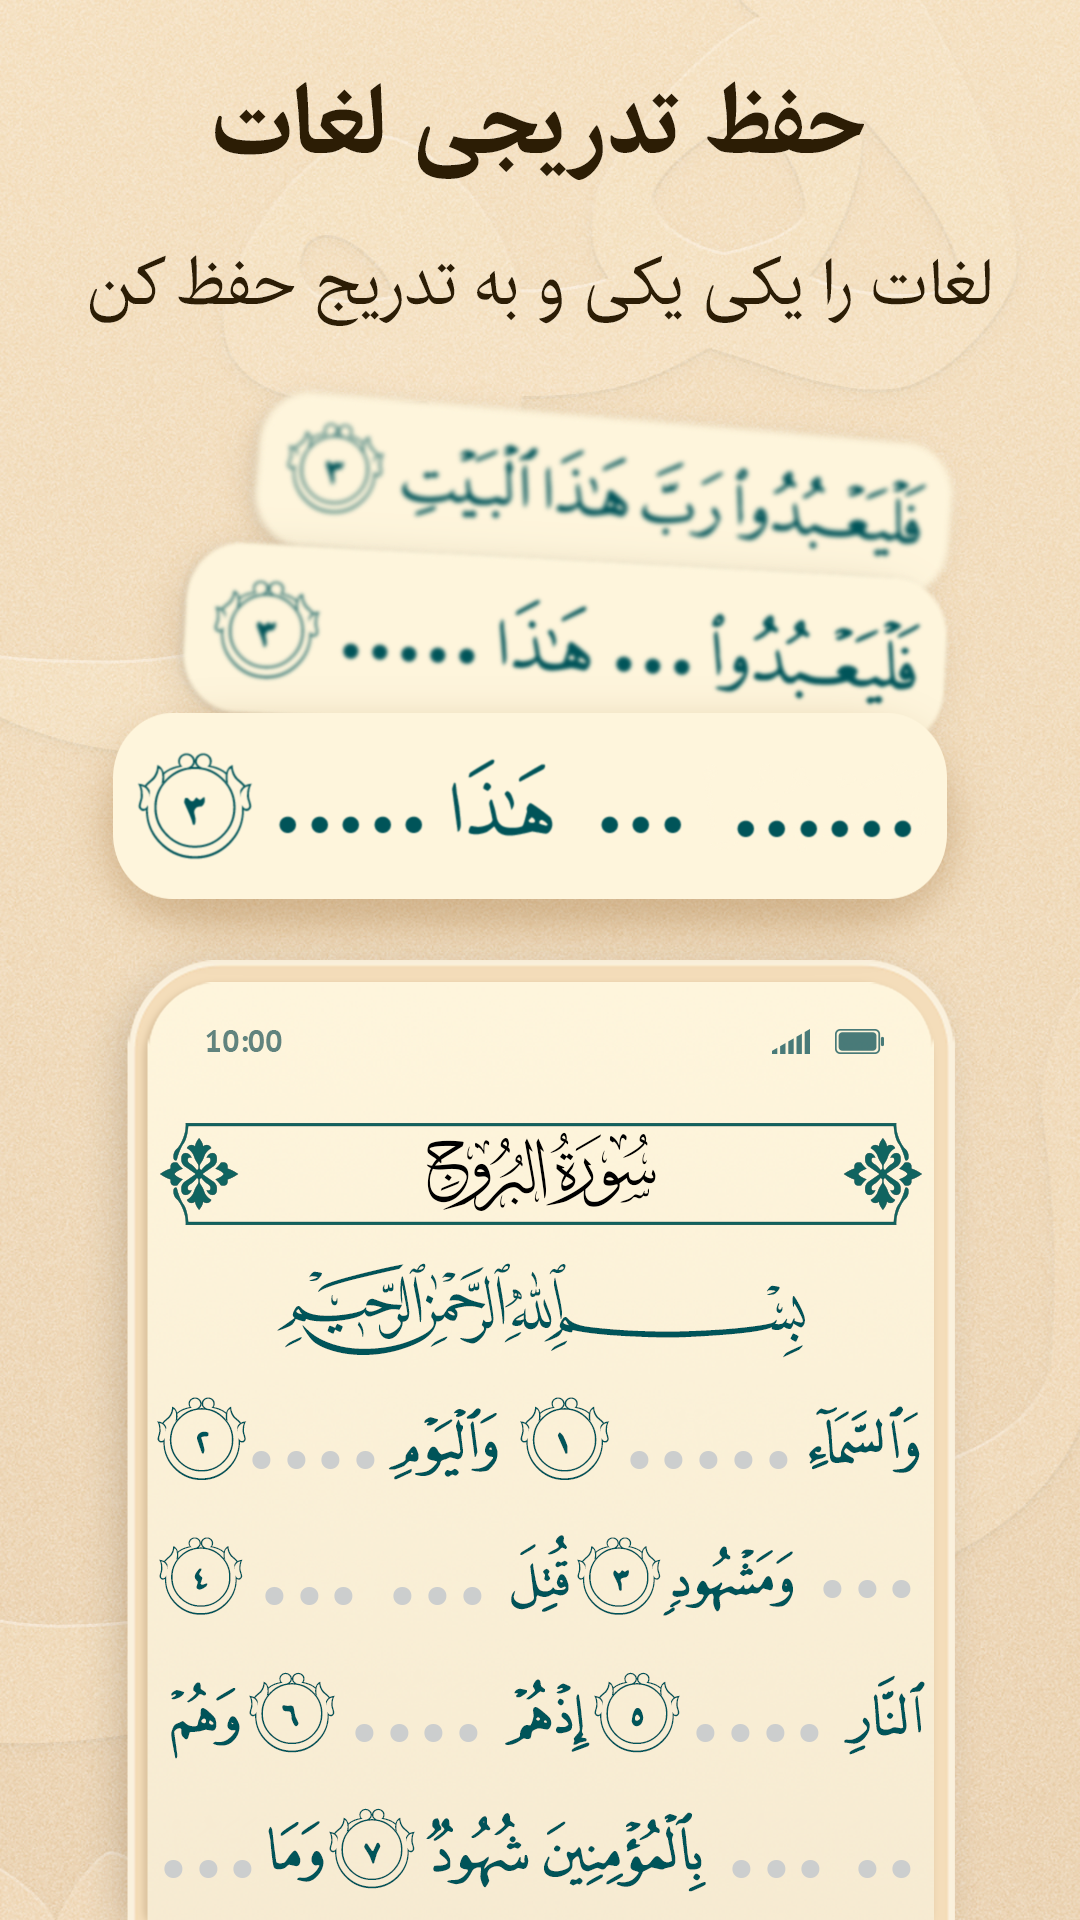 حفظ تدریجی لغات
لغات را یکی یکی و به تدریج حفظ کن
فَلۡيَعۡبُدُواْ رَبَّ هَٰذَا ٱلۡبَيۡتِ ٣
فَلۡيَعۡبُدُواْ ... هَٰذَا ..... ٣
...... ... هَٰذَا ..... ٣
10:00
سُورَةُ البُرُوجِ
بِسۡمِ ٱللَّهِ ٱلرَّحۡمَٰنِ ٱلرَّحِيمِ
وَٱلسَّمَآءِ ..... ١ وَٱلۡيَوۡمِ .... ٢
... وَمَشۡهُودٖ ٣ قُتِلَ ... ... ٤
ٱلنَّارِ .... ٥ إِذۡ هُمۡ .... ٦ وَهُمۡ
.. ... بِٱلۡمُؤۡمِنِينَ شُهُودٞ ٧ وَمَا ...